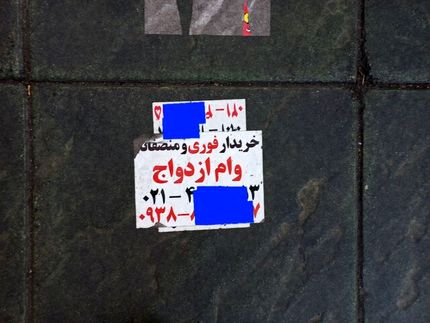 ۱۸۰ -
خریدار فوری و منصفانه
وام ازدواج
۰۲۱ - ۴ ۳
۰۹۳۸ - ۷